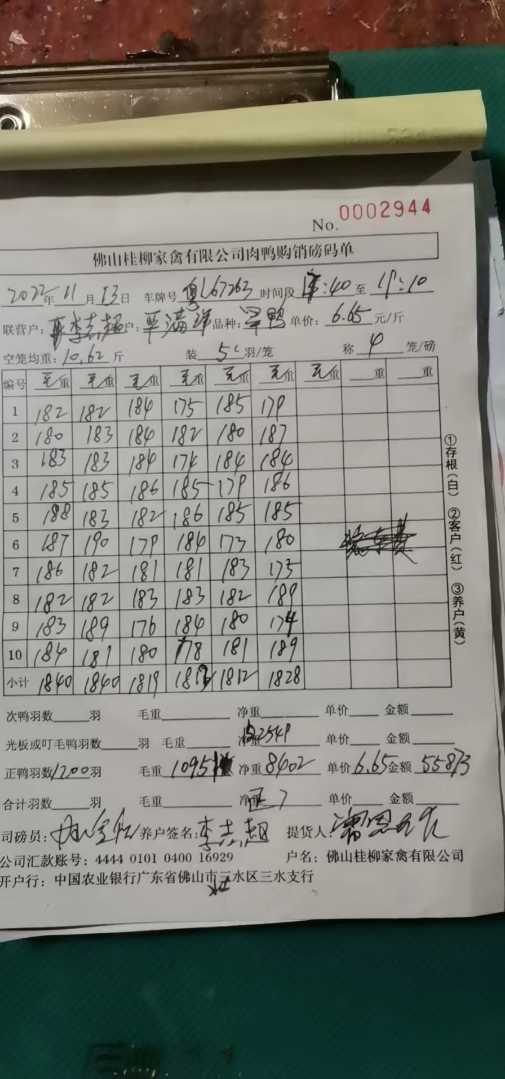 No. 0002944
佛山桂柳家禽有限公司肉鸭购销磅码单
2022年11月13日 车牌号 粤L67263 时间段 :40 至 :10
联营户: 李志超 户: 满 品种: 鸭 单价: 6.65 元/斤
空笼均重: 10.62 斤 装 5 羽/笼 称 4 笼/磅
编号 毛重 毛重 毛重 毛重 毛重 毛重 毛重 重 重
1 182 182 184 175 185 179
2 180 183 184 182 180 187
3 183 183 184 174 184 184
4 185 185 186 185 179 186
5 188 183 182 186 185 185
6 187 190 179 184 173 180
7 186 182 181 181 183 175
8 182 182 183 183 182 189
9 183 189 176 184 180 174
10 184 181 180 178 181 189
小计 1840 1840 1819 1812 1828
①存根(白) ②客户(红) ③养户(黄)
次鸭羽数 羽 毛重 净重 单价 金额
光板或叮毛鸭羽数 羽 毛重 净重 2549 单价 金额
正鸭羽数 1200 羽 毛重 1095 净重 8402 单价 6.65 金额 55873
合计羽数 毛重 净重 单价 金额
司磅员: 养户签名: 李志超 提货人
公司汇款账号: 4444 0101 0400 16929 户名: 佛山桂柳家禽有限公司
开户行: 中国农业银行广东省佛山市三水区三水支行